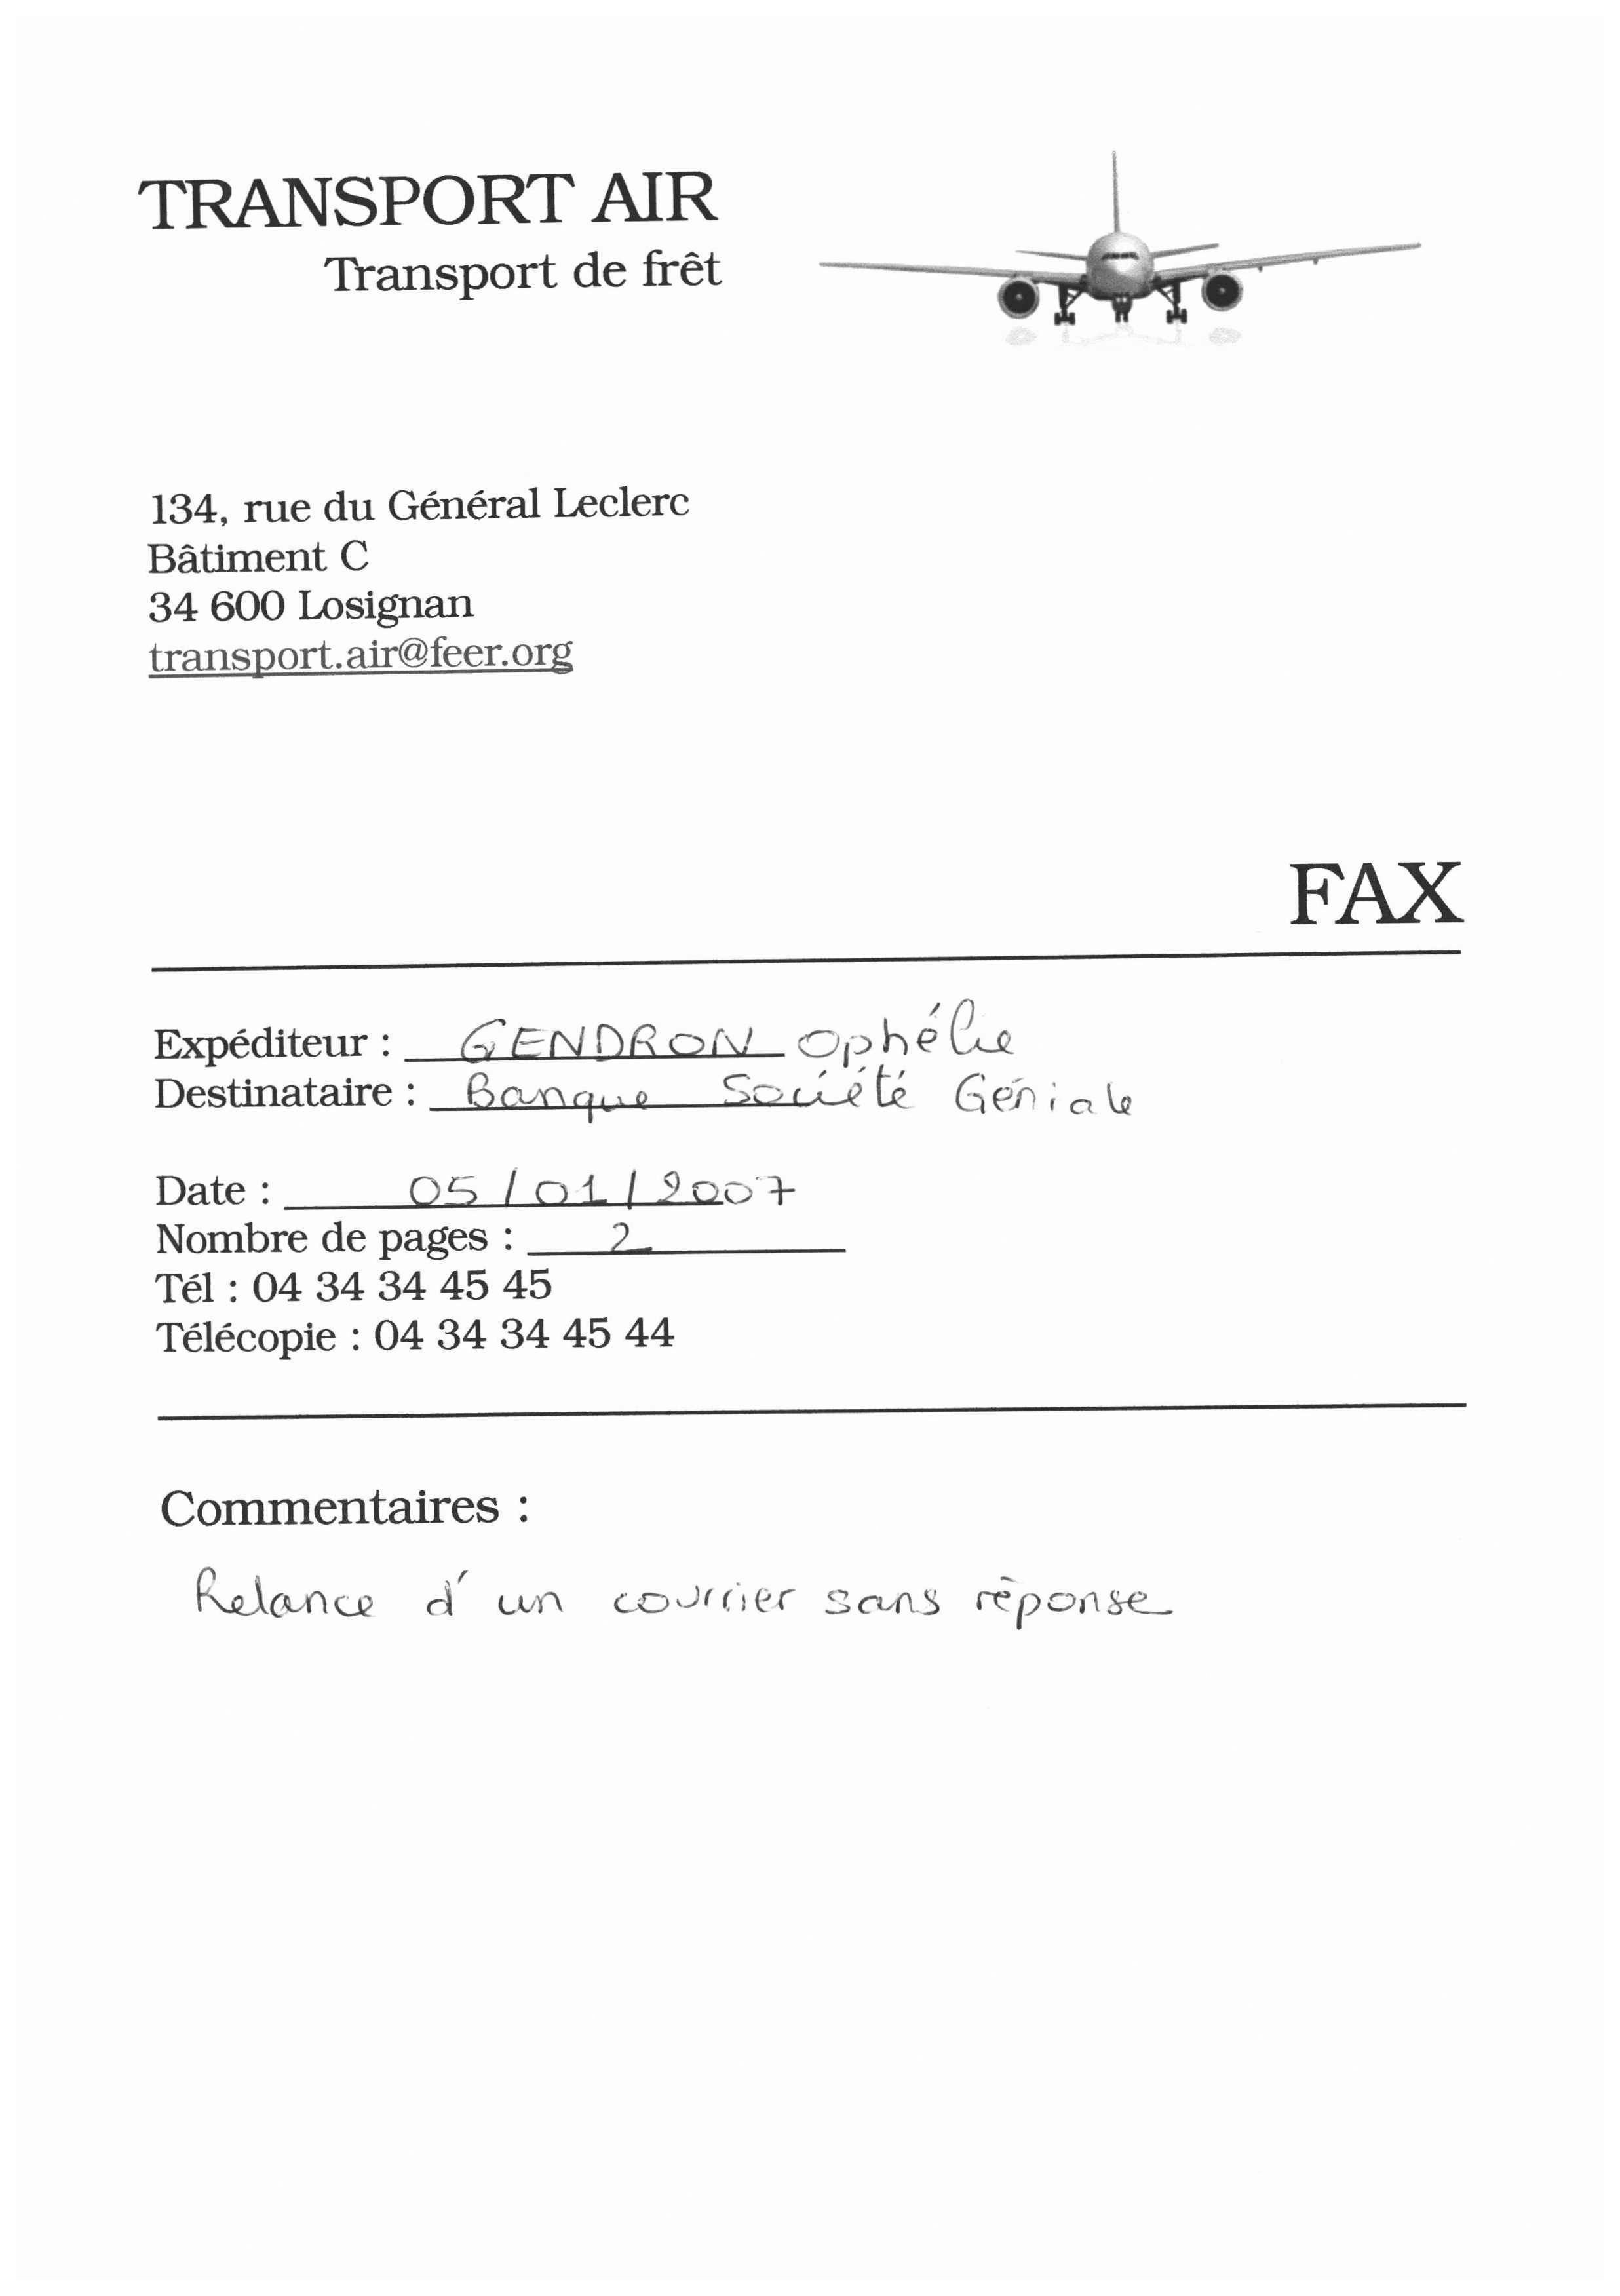 TRANSPORT AIR
Transport de frêt
134, rue du Général Leclerc
Bâtiment C
34 600 Losignan
transport.air@feer.org
FAX
Expéditeur : GENDRON Ophélie
Destinataire : Banque Société Géniale
Date : 05/01/2007
Nombre de pages : 2
Tél : 04 34 34 45 45
Télécopie : 04 34 34 45 44
Commentaires :
Relance d'un courrier sans réponse